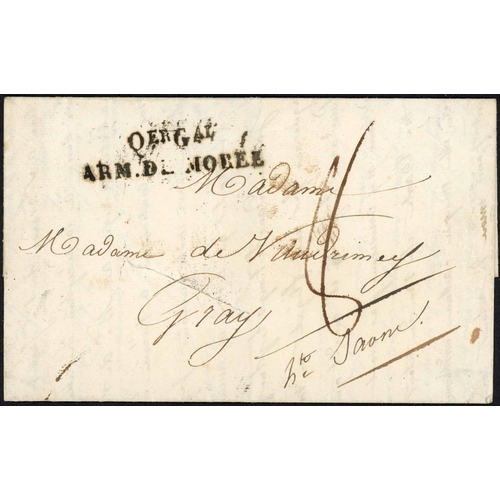 QER GAL
ARM. DE MORÉE
Madame
Madame de Vaudrimey
Gray
hte Saone.